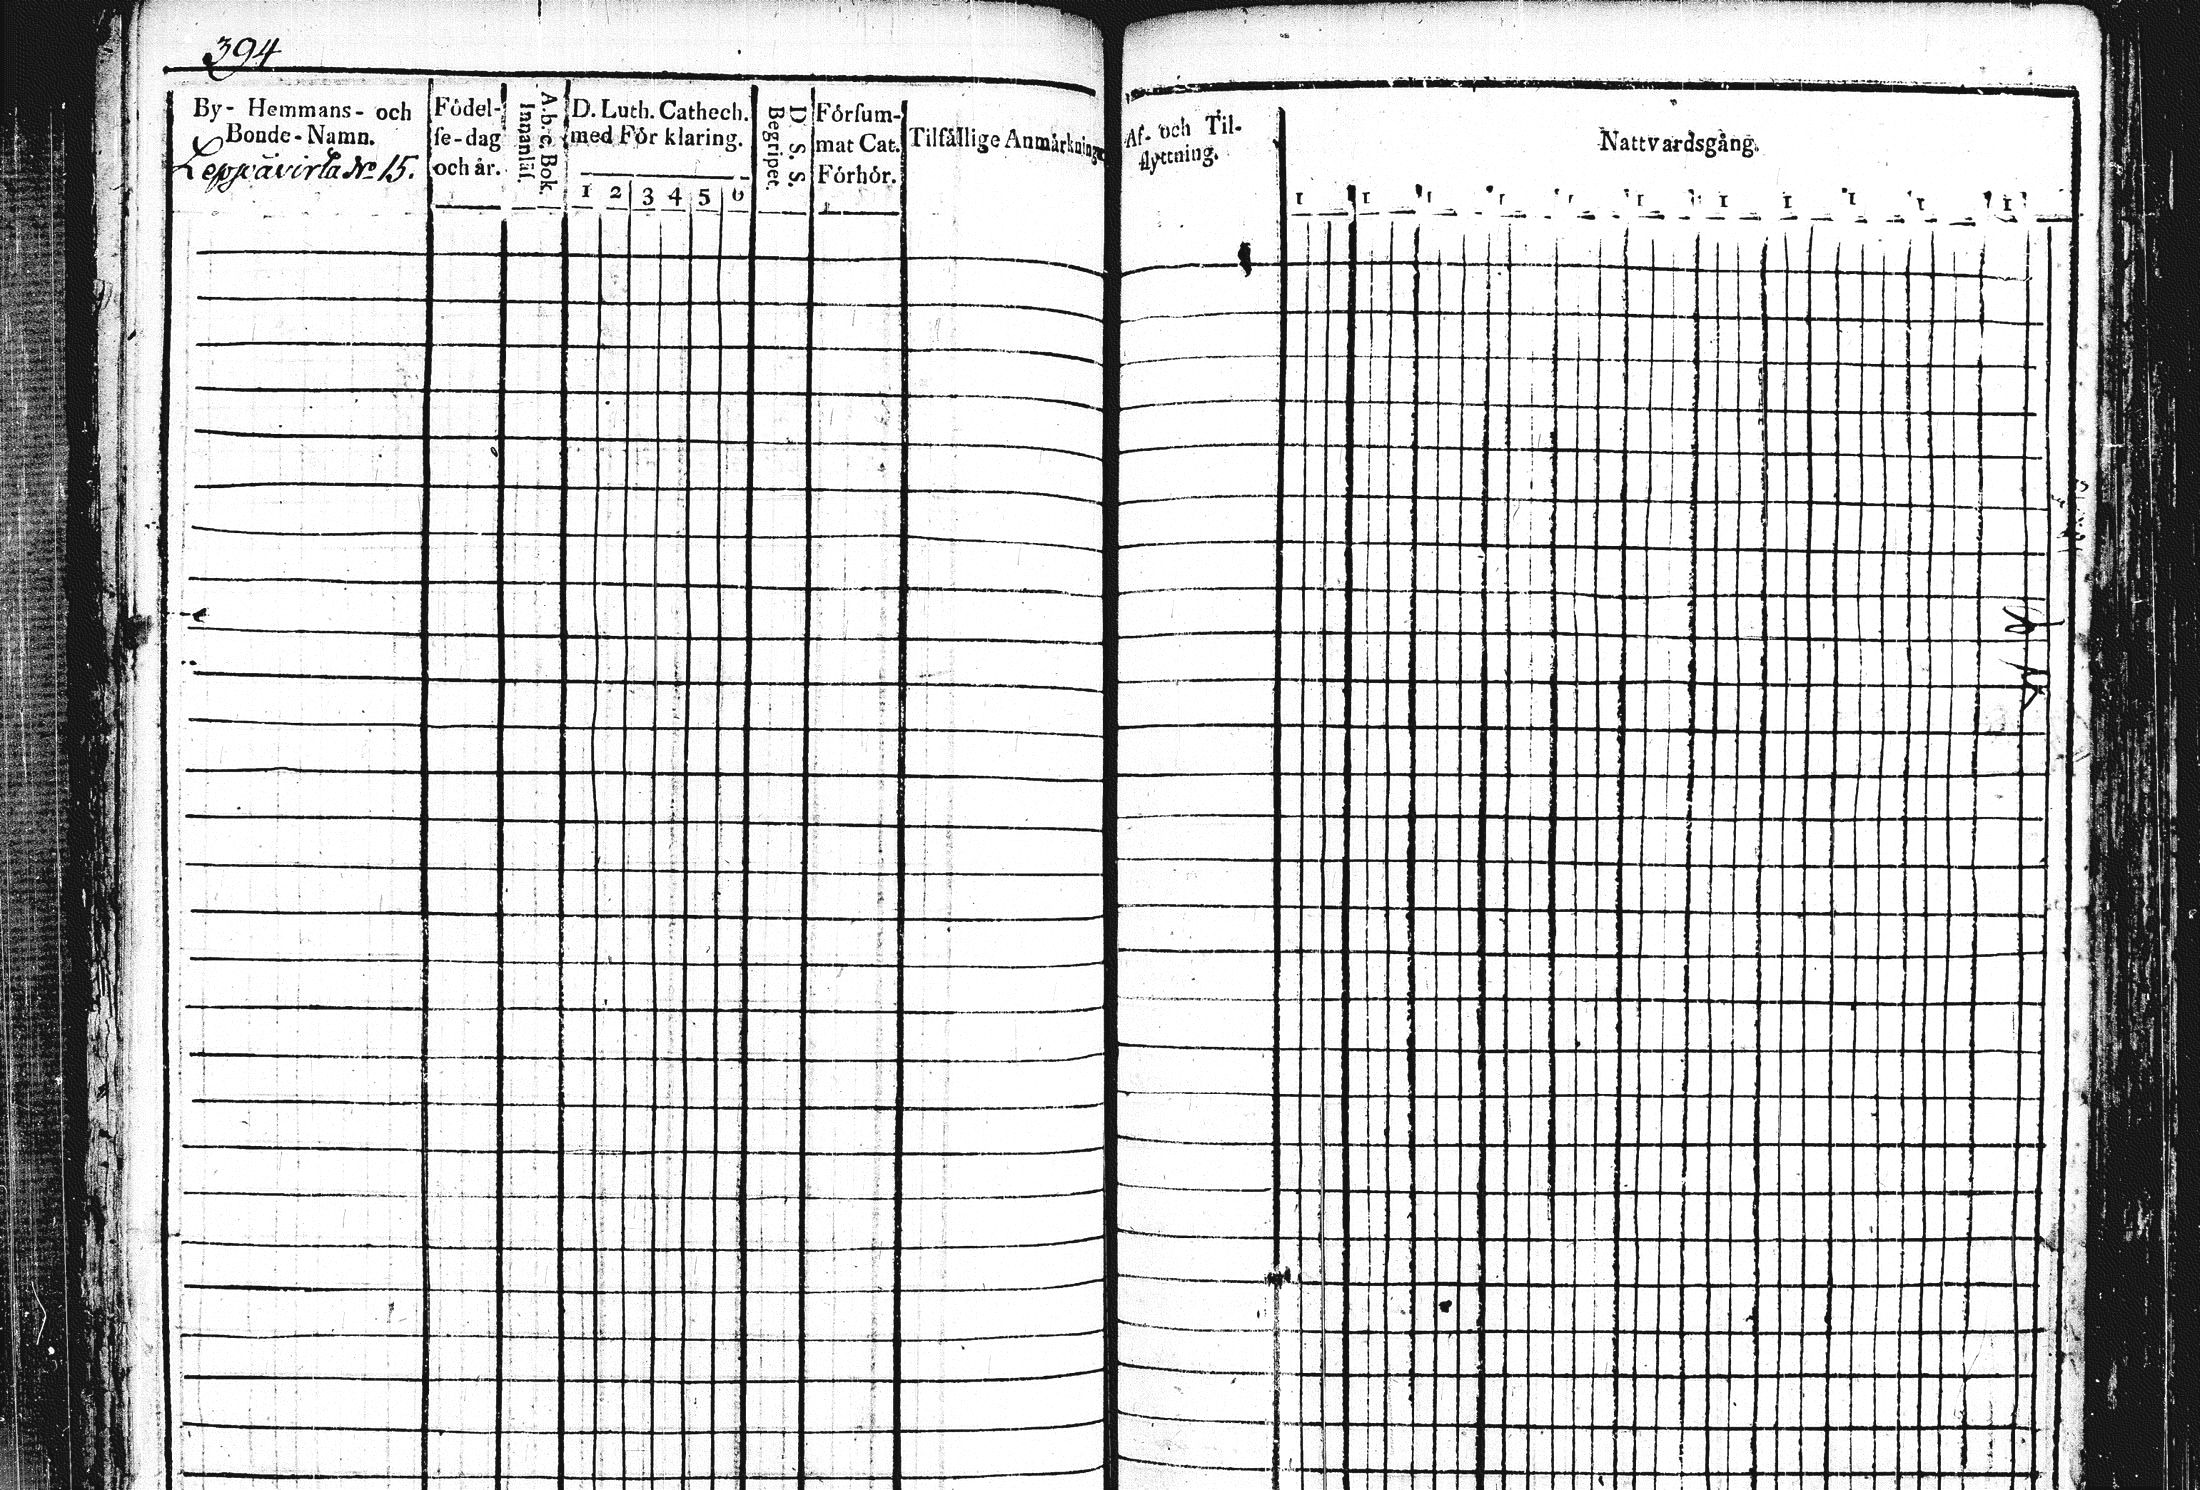 394
By- Hemmans- och
Bonde-Namn.
Leppävirta No 15.
Födel-
se-dag
och år.
A.b.c. Bok.
Innanläs.
D. Luth. Cathech.
med För klaring.
1 2 3 4 5 6
D. S. S.
Begripet.
Försum-
mat Cat.
Förhör.
Tilfällige Anmärkningar
Af- och Til-
flyttning.
Nattvardsgång.
1 1 1 1 1 1 1 1 1 1 1